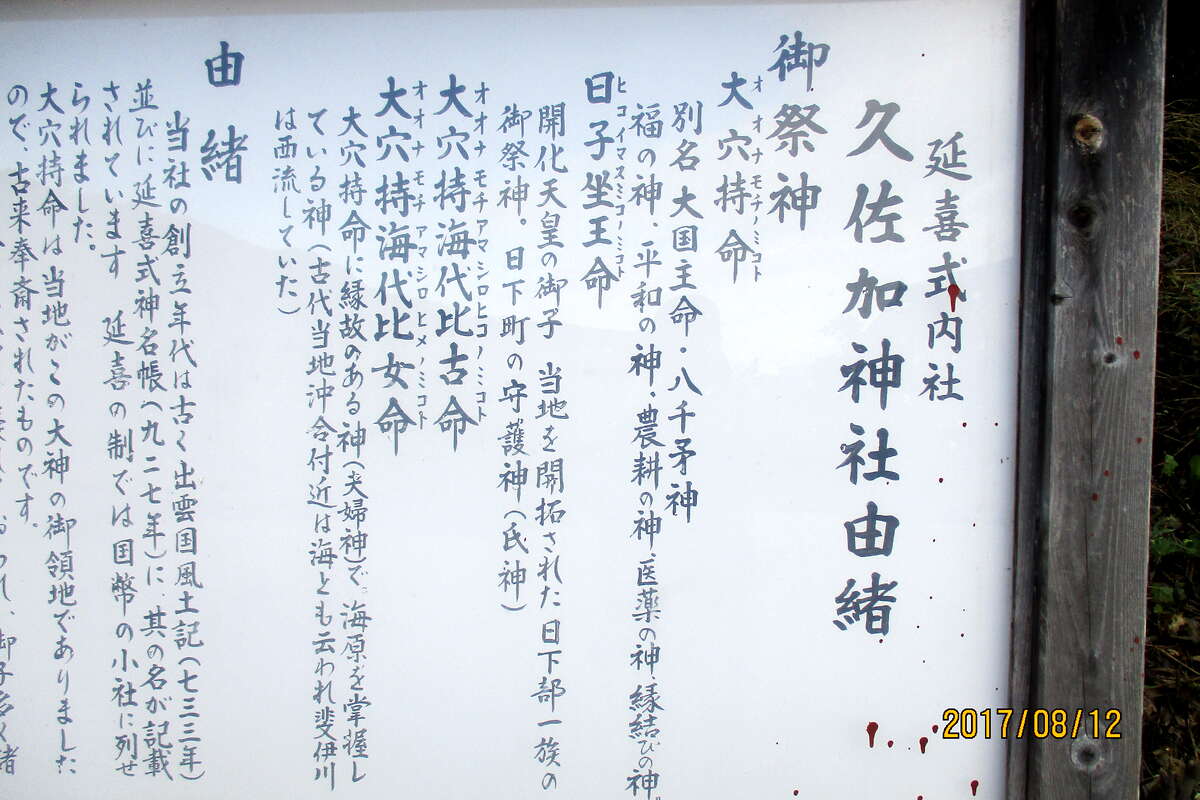 延喜式内社
久佐加神社由緒
御祭神
大穴持命
オオナモチノミコト
別名大国主命・八千矛神
福の神、平和の神、農耕の神、医薬の神、縁結びの神。
日子坐王命
ヒコイマスミコノミコト
開化天皇の御子 当地を開拓された日下部一族の
御祭神。日下町の守護神(氏神)
大穴持海代比古命
オオナモチアマシロヒコノミコト
大穴持海代比女命
オオナモチアマシロヒメノミコト
大穴持命に縁故のある神(夫婦神)で。海原を掌握し
ている神(古代当地沖合付近は海とも云われ斐伊川
は西流していた)
由緒
当社の創立年代は古く出雲国風土記(七三三年)
並びに延喜式神名帳(九二七年)に、其の名が記載
されています 延喜の制では国幣の小社に列せ
られました。
大穴持命は当地がこの大神の御領地でありました
ので、古来奉斎されたものです。